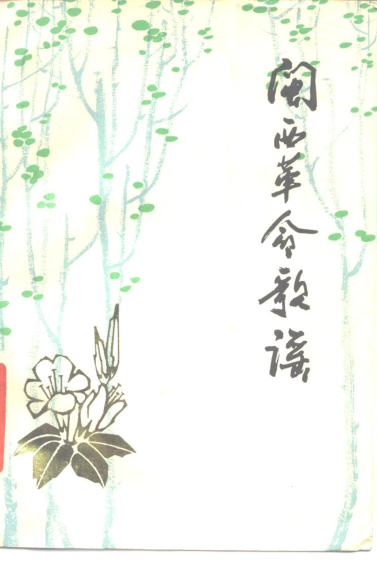 闽西革命歌谣